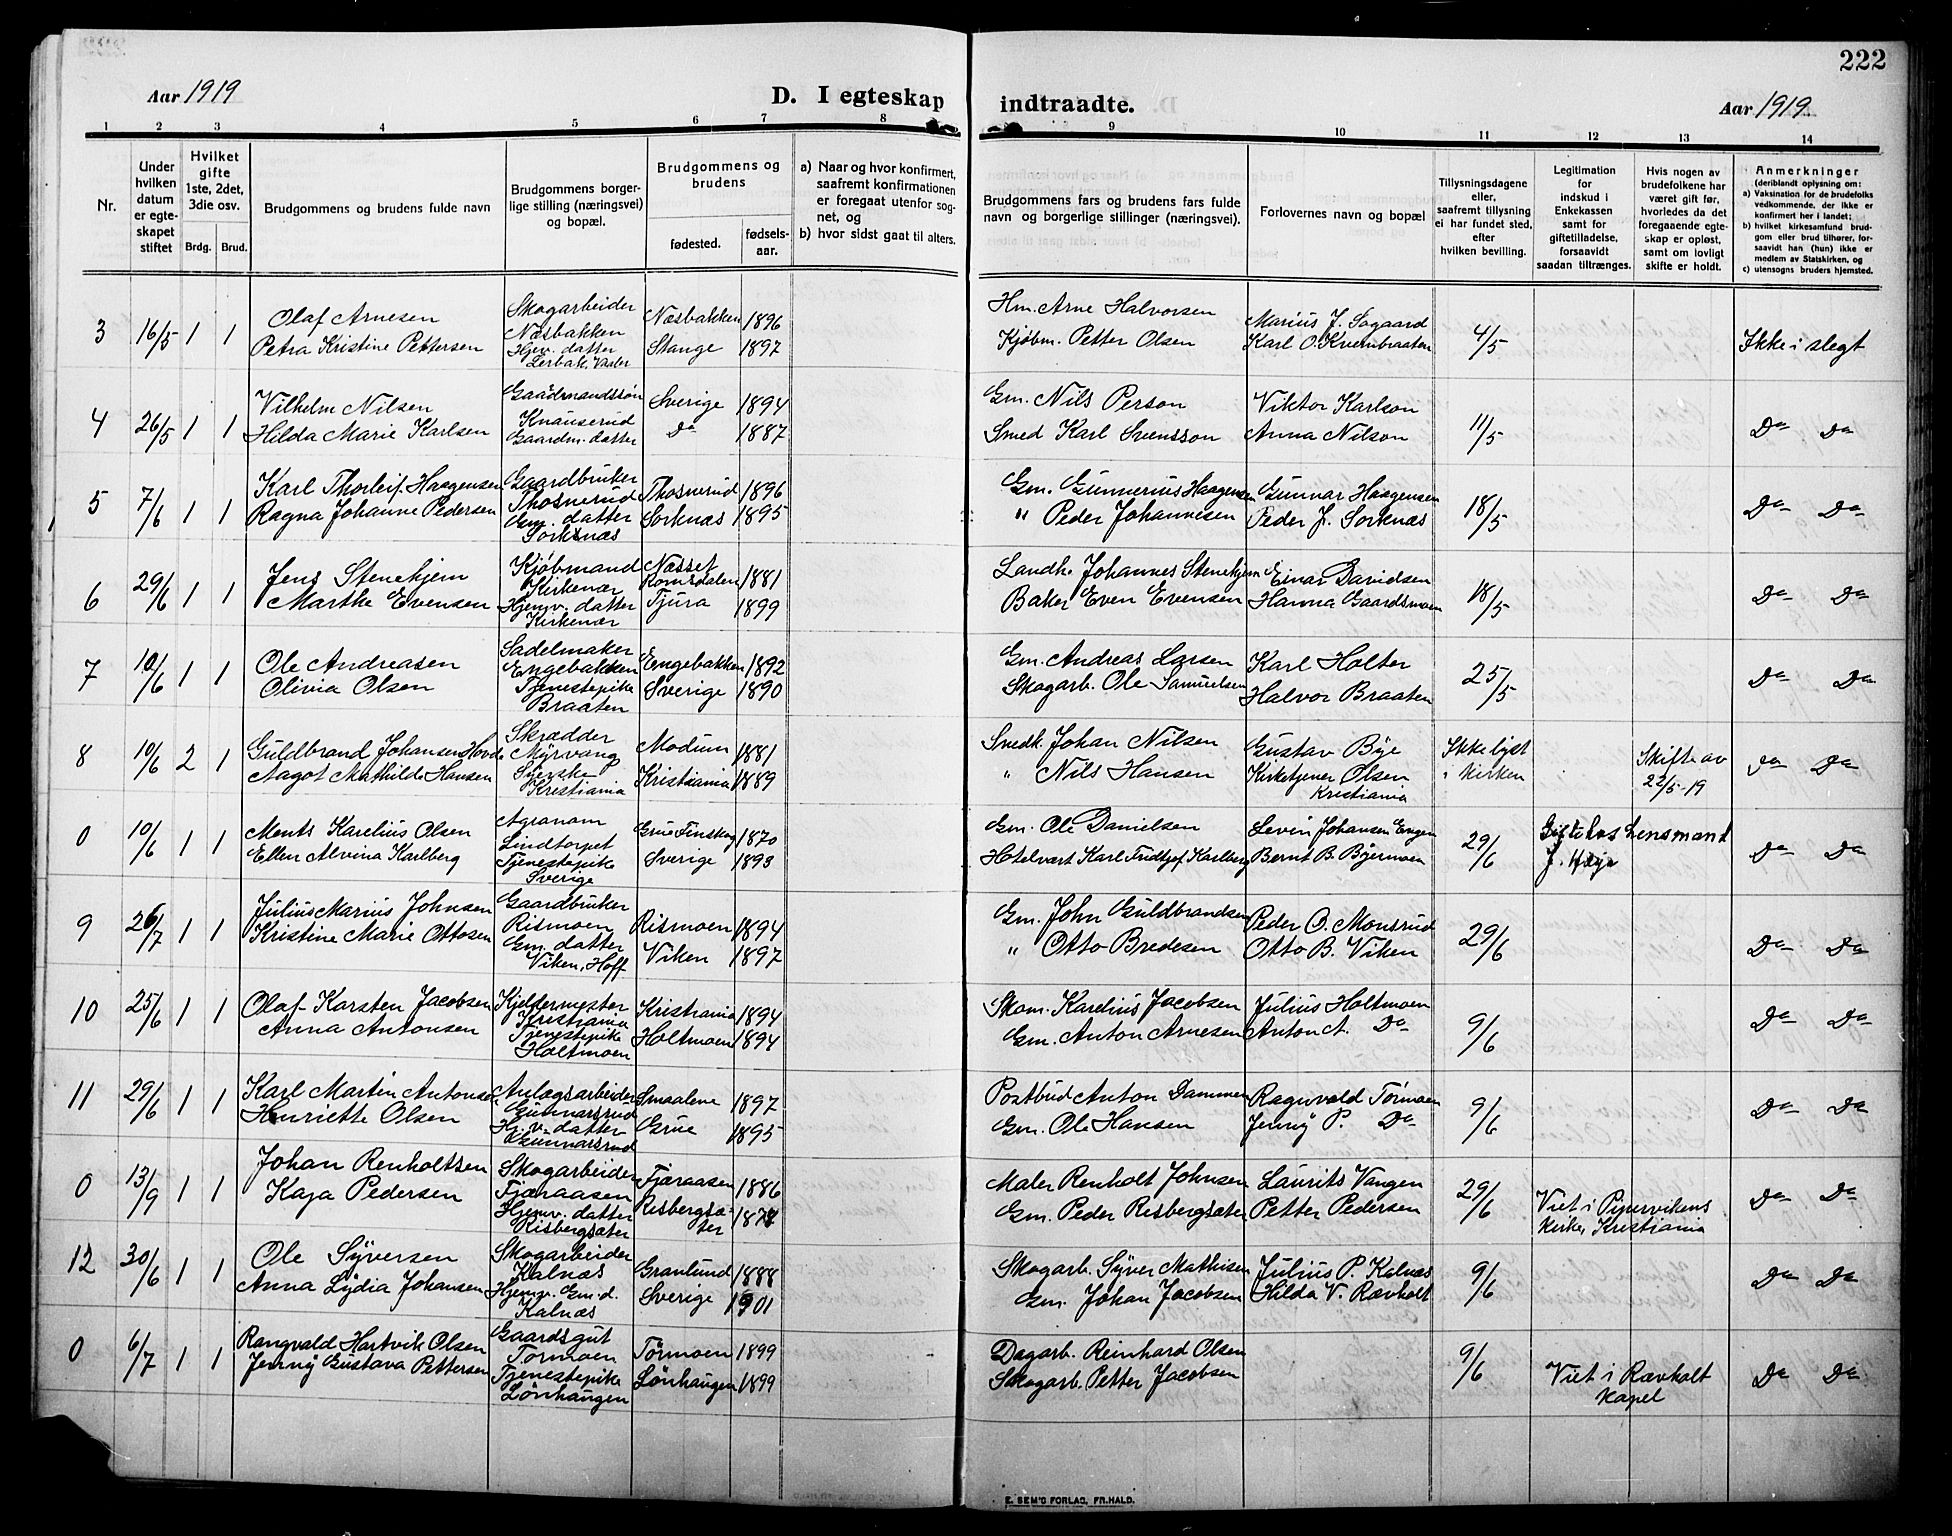 222
Aar 1919
D. I egteskap indtraadte.
Aar 1919
1 2 3 4 5 6 7 8 9 10 11 12 13 14
Nr.
Under hvilken datum er egteskapet stiftet
Hvilket gifte 1ste, 2det, 3die osv.
Brdg. Brud.
Brudgommens og brudens fulde navn
Brudgommens borgerlige stilling (næringsvei) og bopæl.
Brudgommens og brudens
fødested.
fødselsaar.
a) Naar og hvor konfirmert, saafremt konfirmationen er foregaat utenfor sognet, og
b) hvor sidst gaat til alters.
Brudgommens fars og brudens fars fulde navn og borgerlige stillinger (næringsvei).
Forlovernes navn og bopæl
Tillysningsdagene eller, saafremt tillysning ei har fundet sted, efter hvilken bevilling.
Legitimation for indskud i Enkekassen samt for giftetilladelse, forsaavidt saadan tiltrænges.
Hvis nogen av brudefolkene har været gift før, hvorledes da det foregaaende egteskap er opløst, samt om lovligt skifte er holdt.
Anmerkninger (deriblandt oplysning om:
a) Vaksination for de brudefolks vedkommende, der ikke er konfirmert her i landet;
b) hvilket kirkesamfund brudgom eller brud tilhører, forsaavidt han (hun) ikke er medlem av Statskirken, og
c) utensogns bruders hjemsted.
3 16/5 1 1 Olaf Arnesen Skogarbeider Næsbakken Næsbakken 1896 Hm. Arne Halvorsen Marius J. Sogaard 4/5 Ikke i slegt
Petra Kristine Pettersen Hjev. datter Lerbak, Vaaler Stange 1897 Kjøbm. Petter Olsen Karl O. Kvernbraaten
4 26/5 1 1 Vilhelm Nilsen Gaardmandssøn Knauserud Sverige 1894 Gm. Nils Person Viktor Karlson 11/5 Do Do
Hilda Marie Karlsen Gaardm. datter Do 1887 Smed Karl Svensson Anna Nilson
5 7/6 1 1 Karl Thorleif Haagensen Gaardbruker Thosnerud Thosnerud 1896 Gm. Gunnerius Haagensen Gunnar Haagensen 18/5 Do Do
Ragna Johanne Pedersen Gm. datter Sorknæs Sorknæs 1895 " Peder Johannesen Peder J. Sorknæs
6 29/6 1 1 Jens Stenehjem Kjøbmand Kirkenær Næsset Romsdalen 1881 Landh. Johannes Stenehjem Einar Davidsen 18/5 Do Do
Marthe Evensen Hjemv. datter Kirkenær Tjura 1899 Baker Even Evensen Hanna Gaardsmoen
7 10/6 1 1 Ole Andreasen Sadelmaker Engebakken Engebakken 1892 Gm. Andreas Larsen Karl Holter 25/5 Do Do
Olivia Olsen Tjenestepike Braaten Sverige 1890 Skogarb. Ole Samuelsen Halvor Braaten
8 10/6 2 1 Guldbrand Johansen Hovde Skrædder Myrvang Modum 1881 Snedk. Johan Nilsen Gustav Bye Ikke lyst i kirken Skifte av 22/5-19 Do Do
Aagot Mathilde Hansen Syerske Kristiania Kristiania 1889 " Nils Hansen Kirketjener Olsen Kristiania
0 10/6 1 1 Ments Karelius Olsen Agronom Lindtorpet Grue Finskog 1870 Gm. Ole Danielsen Levin Johansen Engen 29/6 Gift hos Lensmand J. Do Do
Ellen Alvina Karlberg Tjenestepike Sverige Sverige 1893 Hotelvært Karl Fridtjof Karlberg Bernt B. Byermoen
9 26/7 1 1 Julius Marius Johnsen Gaardbruker Rismoen Rismoen 1894 Gm. John Guldbrandsen Peder O. Monsrud 29/6 Do Do
Kristine Marie Ottosen Gm. datter Viken, Hoff Viken 1897 " Otto Bredesen Otto B. Viken
10 25/6 1 1 Olaf Karsten Jacobsen Kjeldermester Kristiania Kristiania 1894 Skom. Karelius Jacobsen Julius Holtmoen 9/6 Do Do
Anna Antonsen Tjenestepike Holtmoen Holtmoen 1894 Gm. Anton Arnesen Anton A. Do
11 29/6 1 1 Karl Martin Antonsen Anlægsarbeider Gunnarsrud Smaalene 1897 Postbud Anton Dammen Ragnvald Tørmoen 9/6 Do Do
Henriette Olsen Hj. v. datter Gunnarsrud Grue 1895 Gm. Ole Hansen Jenny P. Do
0 13/9 1 1 Johan Renholtsen Skogarbeider Fjæraasen Fjæraasen 1886 Maler Renholt Johnsen Laurits Vangen 29/6 Viet i Pipervikens kirke, Kristiania Do Do
Kaja Pedersen Hjemv. datter Risbergsæter Risbergsæter 1878 Gm. Peder Risbergsæter Petter Pedersen
12 30/6 1 1 Ole Syversen Skogarbeider Kalnæs Granlund 1888 Skogarb. Syver Mathisen Julius P. Kalnæs 9/6 Do Do
Anna Lydia Johansen Hjemv. Gm. d. Kalnæs Sverige 1901 Gm. Johan Jacobsen Hilda V. Rævholt
0 6/7 1 1 Rangvald Hartvik Olsen Gaardsgut Tørmoen Tørmoen 1899 Dagarb. Reinhard Olsen 9/6 Viet i Rævholt kapel Do Do
Jenny Gustava Pettersen Tjenestepike Lønhaugen Lønhaugen 1899 Skogarb. Petter Jacobsen
E. SEM'S FORLAG, FR.HALD.